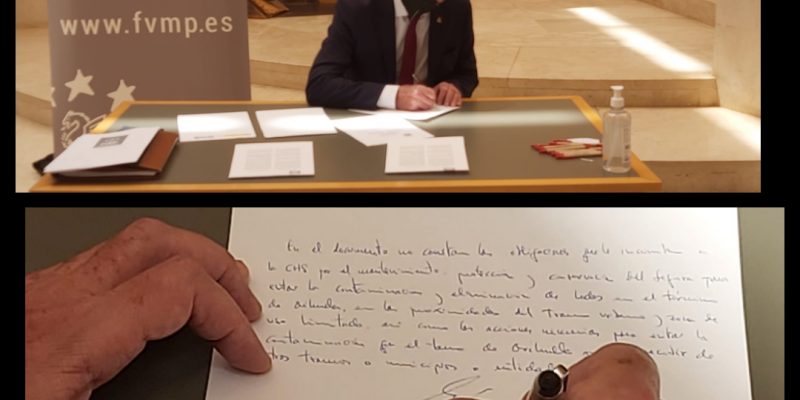 www.fvmp.es
En el documento no constan las obligaciones que le incumben a
la CHS por el mantenimiento, protección y conservación del Segura para
evitar la contaminación y eliminación de lodos en el término
de Orihuela, en las proximidades del Tramo urbano y zona de
uso limitado, así como las acciones necesarias para evitar la
contaminación que el tramo de Orihuela
otros tramos o municipios o entidades